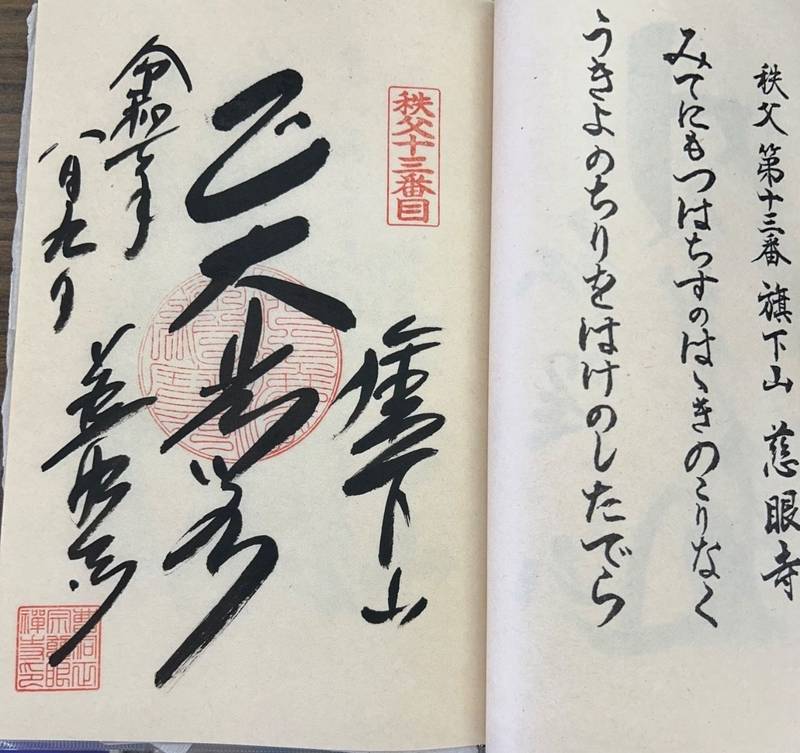 秩父 第十三番 旗下山 慈眼寺
みてにもつはちすのはゝきのこりなく
うきよのちりをはけのしたでら
秩父十三番目
旗下山
大悲
令和七年
八月九日
慈眼寺